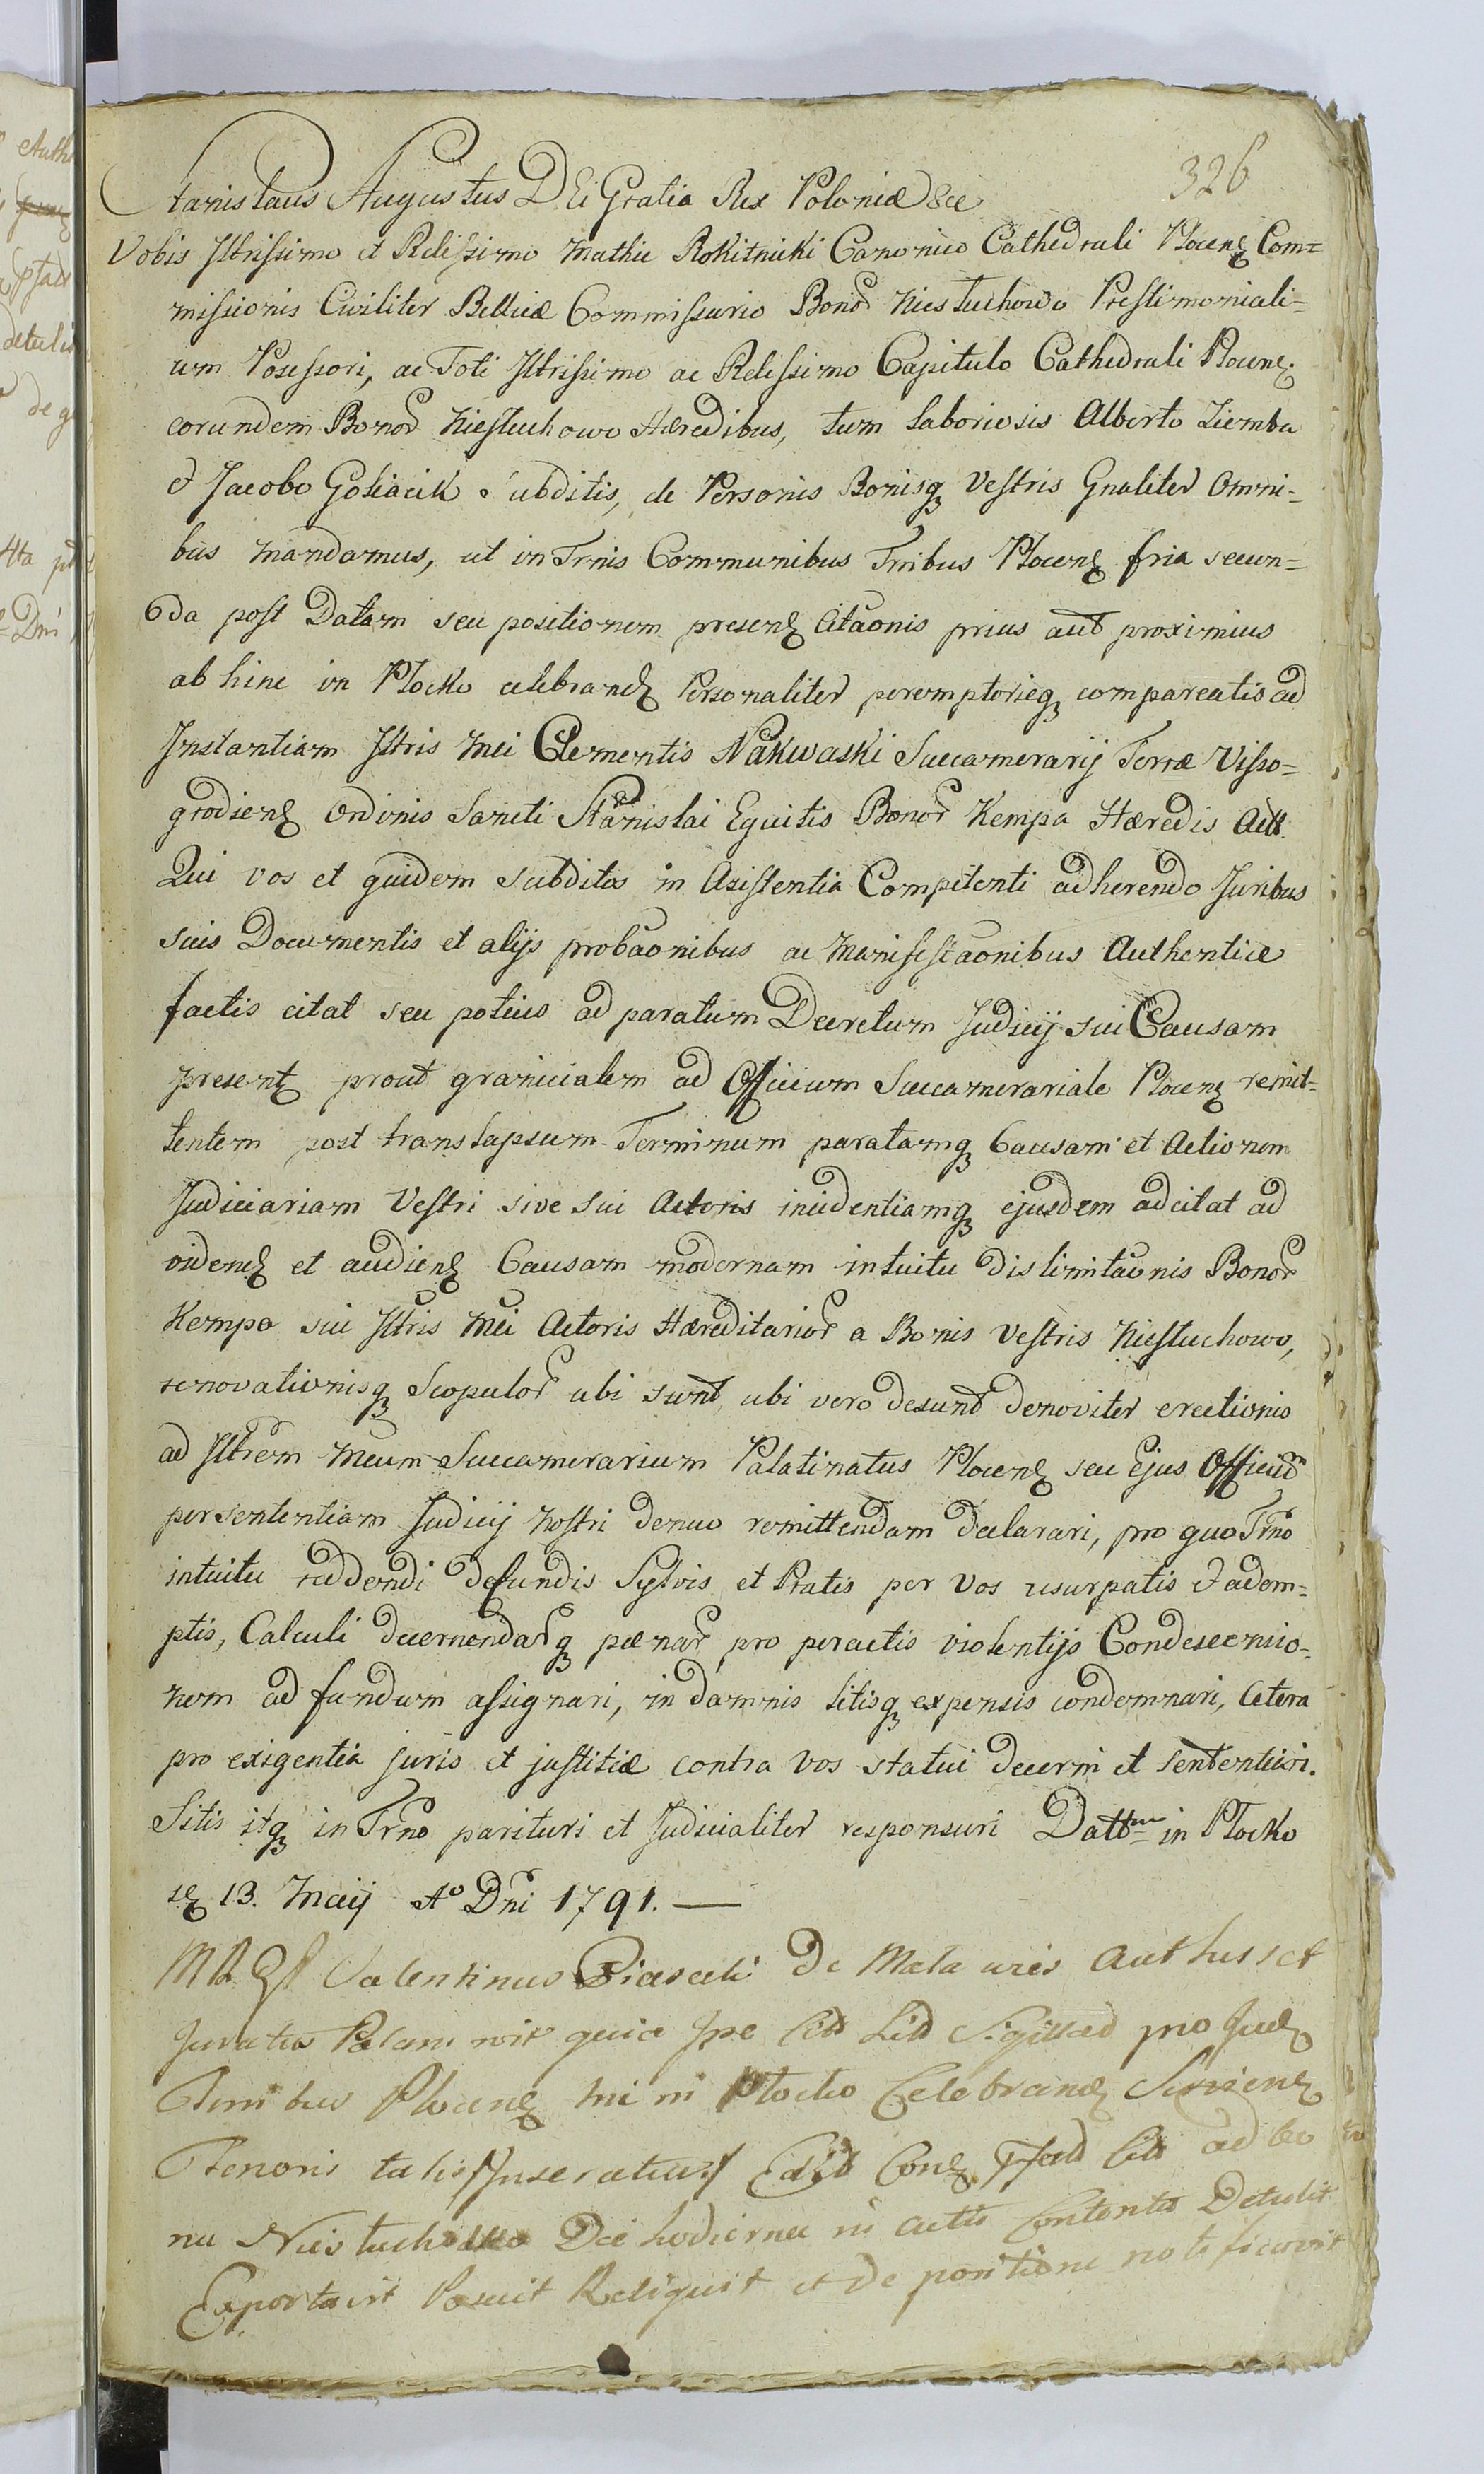 326
Stanislaus Augustus DEi Gratia Rex Poloniæ &ce
Vobis Jltrissimo et Rdissimo Mathie Rokitnicki Canonico Cathedrali Plocenȝ Com=
missionis Civiliter Bellicæ Commissario Bonor Niestuchowo Prestimoniali=
um Posessori, ac Toti Jltrissimo ac Rdissimo Capitulo Cathedrali Plocenȝ
eorundem Bonor Niestuchowo Hæredibus, tum laboriosis Alberto Ziemba
et Jacobo Goliacik Subditis, de Personis Bonisqȝ Vestris Gnaliter Omni=
bus Mandamus, ut in Trnis Communibus Trribus Plocenȝ fria secun=
da post Datam seu positionem presenȝ Citãonis prius aut proximius
ab hinc in Płocko celebrandȝ Personaliter peremptorieqȝ compareatis ad
Jnstantiam Jltris Mei Clementis Nakwaski Succamerarij Terræ Visso=
grodienȝ Ordinis Sancti Stanislai Equitis Bonor Kempa Hæredis Actt
Qui vos et quidem subditos in Asistentia Competenti adherendo Juribus
suis Documentis et alijs probãonibus ac Manifestãonibus Authentice
factis citat seu potius ad paratum Decretum Judicij sui Causam
presentȝ prout granicialem ad Officium Succamerariale Plocenȝ remit=
tentem post translapsum Terminum paratamqȝ Causam et Actionem
Judiciariam Vestri sive sui Actoris incidentiamqȝ ejusdem adcitat ad
videndȝ et audienȝ Causam modernam intuitu dislimitãonis Bonor
Kempa sui Jltris Mei Actoris Hæreditarior a Bonis Vestris Niestuchowo,
renovationisqȝ Scopulor ubi sunt, ubi vero desunt denoviter erectionis
ad Jltrem Meum Succamerarium Palatinatus Plocenȝ seu Ejus Officium
per sententiam Judicij Nostri denuo remittendam declarari, pro quo Trno
intuitu reddendi de fundis Sylvis et Pratis per Vos usurpatis et adem=
ptis, Calculi decernendarqȝ pænar pro peractis violentijs Condescensio=
nem ad fundum assignari, in damnis litisqȝ expensis condemnari, Cetera
pro exigentia juris et justitiæ contra Vos statui decerni et sententiari.
Sitis itqȝ in Trno parituri et Judicialiter responsuri Dattum in Płocko
13. Maij Ao Dni 1791. —
Valentinus Piasecki De Mala wies Authus et
Juratus Palam quia Jpe Citt Litt Sigillatt pro Judȝ
Trribus Plocenȝ hic in Płocko Celebrandȝ
Tenoris talis /Jnseratur/ Citt ad bo
na Niestuchowo Die hodierna in Contento Detulit
Exportavit Posuit Reliquit et De positione notificavit